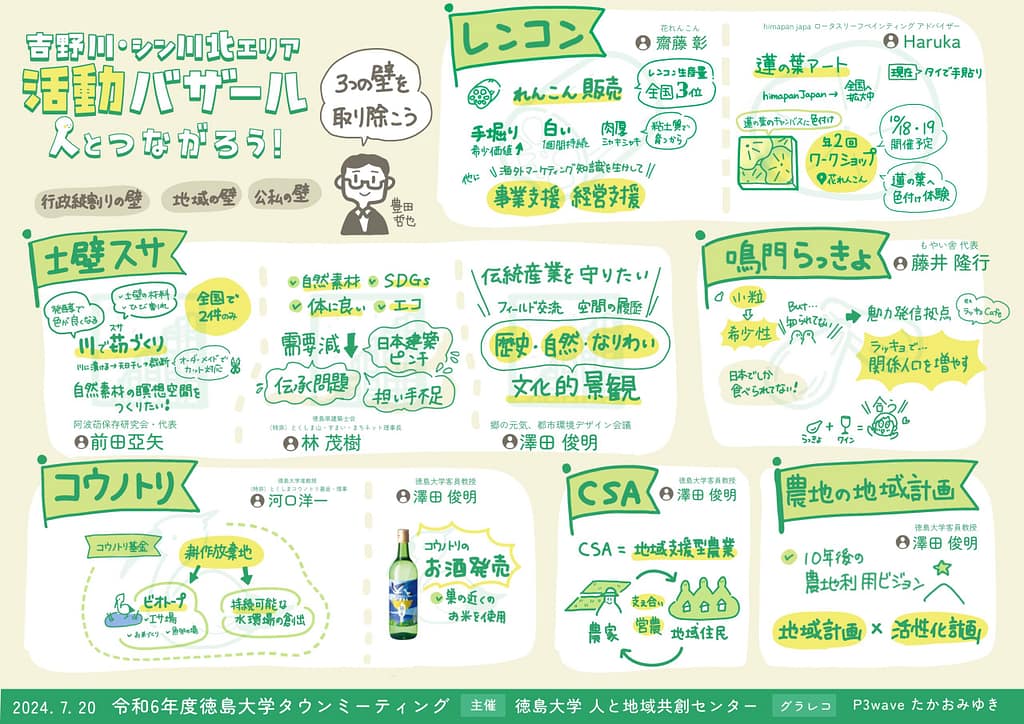 吉野川・シン川北エリア
活動バザール
人とつながろう!
3つの壁を
取り除こう
行政縦割りの壁
地域の壁
公私の壁
豊田
哲也
レンコン
花れんこん
齋藤 彰
れんこん 販売
レンコン生産量
全国3位
手堀り
希少価値↑
白い
1週間持った
肉厚
シャキシャキ
粘土質で
育つから
他に
海外マーケティング知識を生かして
事業支援 経営支援
himapan japa ロータスリーフペインティング アドバイザー
Haruka
蓮の葉アート
現在 タイで手貼り
himapanJapan→
全国へ
拡大中
蓮の葉のキャンバスに色付け
年2回
ワークショップ
花れんこん
10/18・19
開催予定
蓮の葉へ
色付け体験
土壁スサ
発酵で
色が良くなる
土壁の材料
ひび割れ
全国で
2件のみ
スサ
川で苆づくり
川に漬ける→天日干し→裁断
オーダーメイドで
カット対応
自然素材の瞑想空間を
つくりたい!
阿波苆保存研究会・代表
前田亞矢
自然素材 SDGs
体に良い エコ
需要減↓
日本建築
ピンチ
伝承問題
担い手不足
徳島県建築士会
(特非)とくしま山・すまい・まちネット理事長
林 茂樹
伝統産業を守りたい
フィールド交流 空間の履歴
歴史・自然・なりわい
文化的景観
郷の元気、都市環境デザイン会議
澤田 俊明
鳴門らっきょ
もやい舎 代表
藤井 隆行
小粒
希少性
But…
知られてない
魅力発信拠点
ラッキョ Cafe
日本でしか
食べられてない!
ラッキョで…
関係人口を増やす
らっきょ
+
ワイン
=
合う
コウノトリ
徳島大学准教授
(特非)とくしまコウノトリ基金・理事
河口洋一
コウノトリ基金
耕作放棄地
ビオトープ
エサ場
持続可能な
水環場の創出
徳島大学客員教授
澤田 俊明
コウノトリの
お酒発売
巣の近くの
お米を使用
CSA
徳島大学客員教授
澤田 俊明
CSA = 地域支援型農業
支え合い
営農
農家
地域住民
農地の地域計画
徳島大学客員教授
澤田 俊明
10年後の
農地利用ビジョン
地域計画 × 活性化計画
2024. 7. 20 令和6年度徳島大学タウンミーティング 主催 徳島大学 人と地域共創センター グラレコ P3wave たかおみゆき